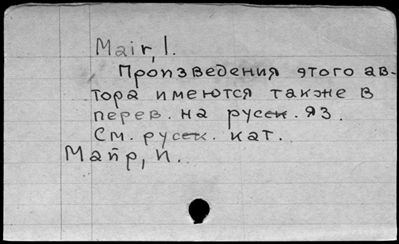 Mair, I.
Произведения этого ав-
тора имеются также в
перев. на русск. яз.
См. русск. кат.
Майр, И.